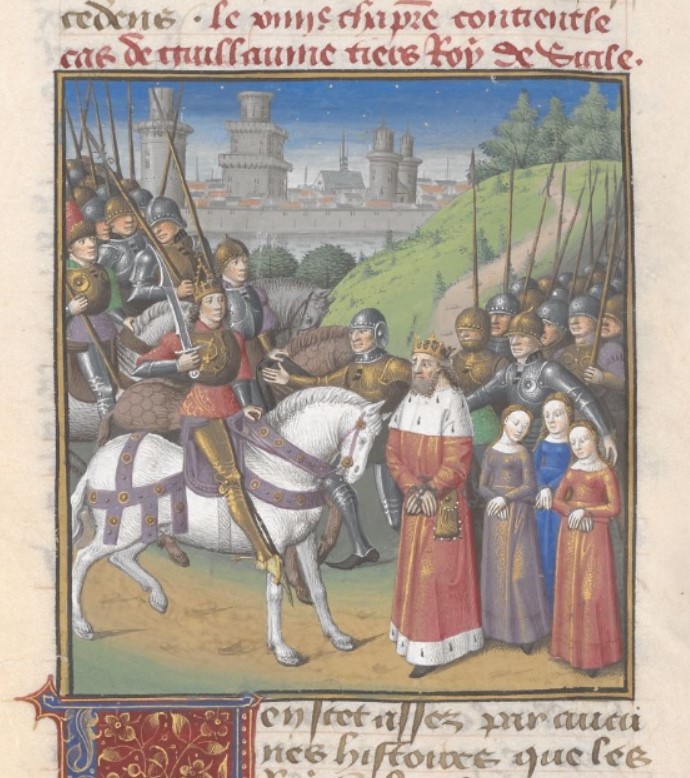 cedens · le xviije chapr̄e contient le
cas de Guillaume tiers Roy de Sicile.
en scet assez par aucu
nes histoires que les